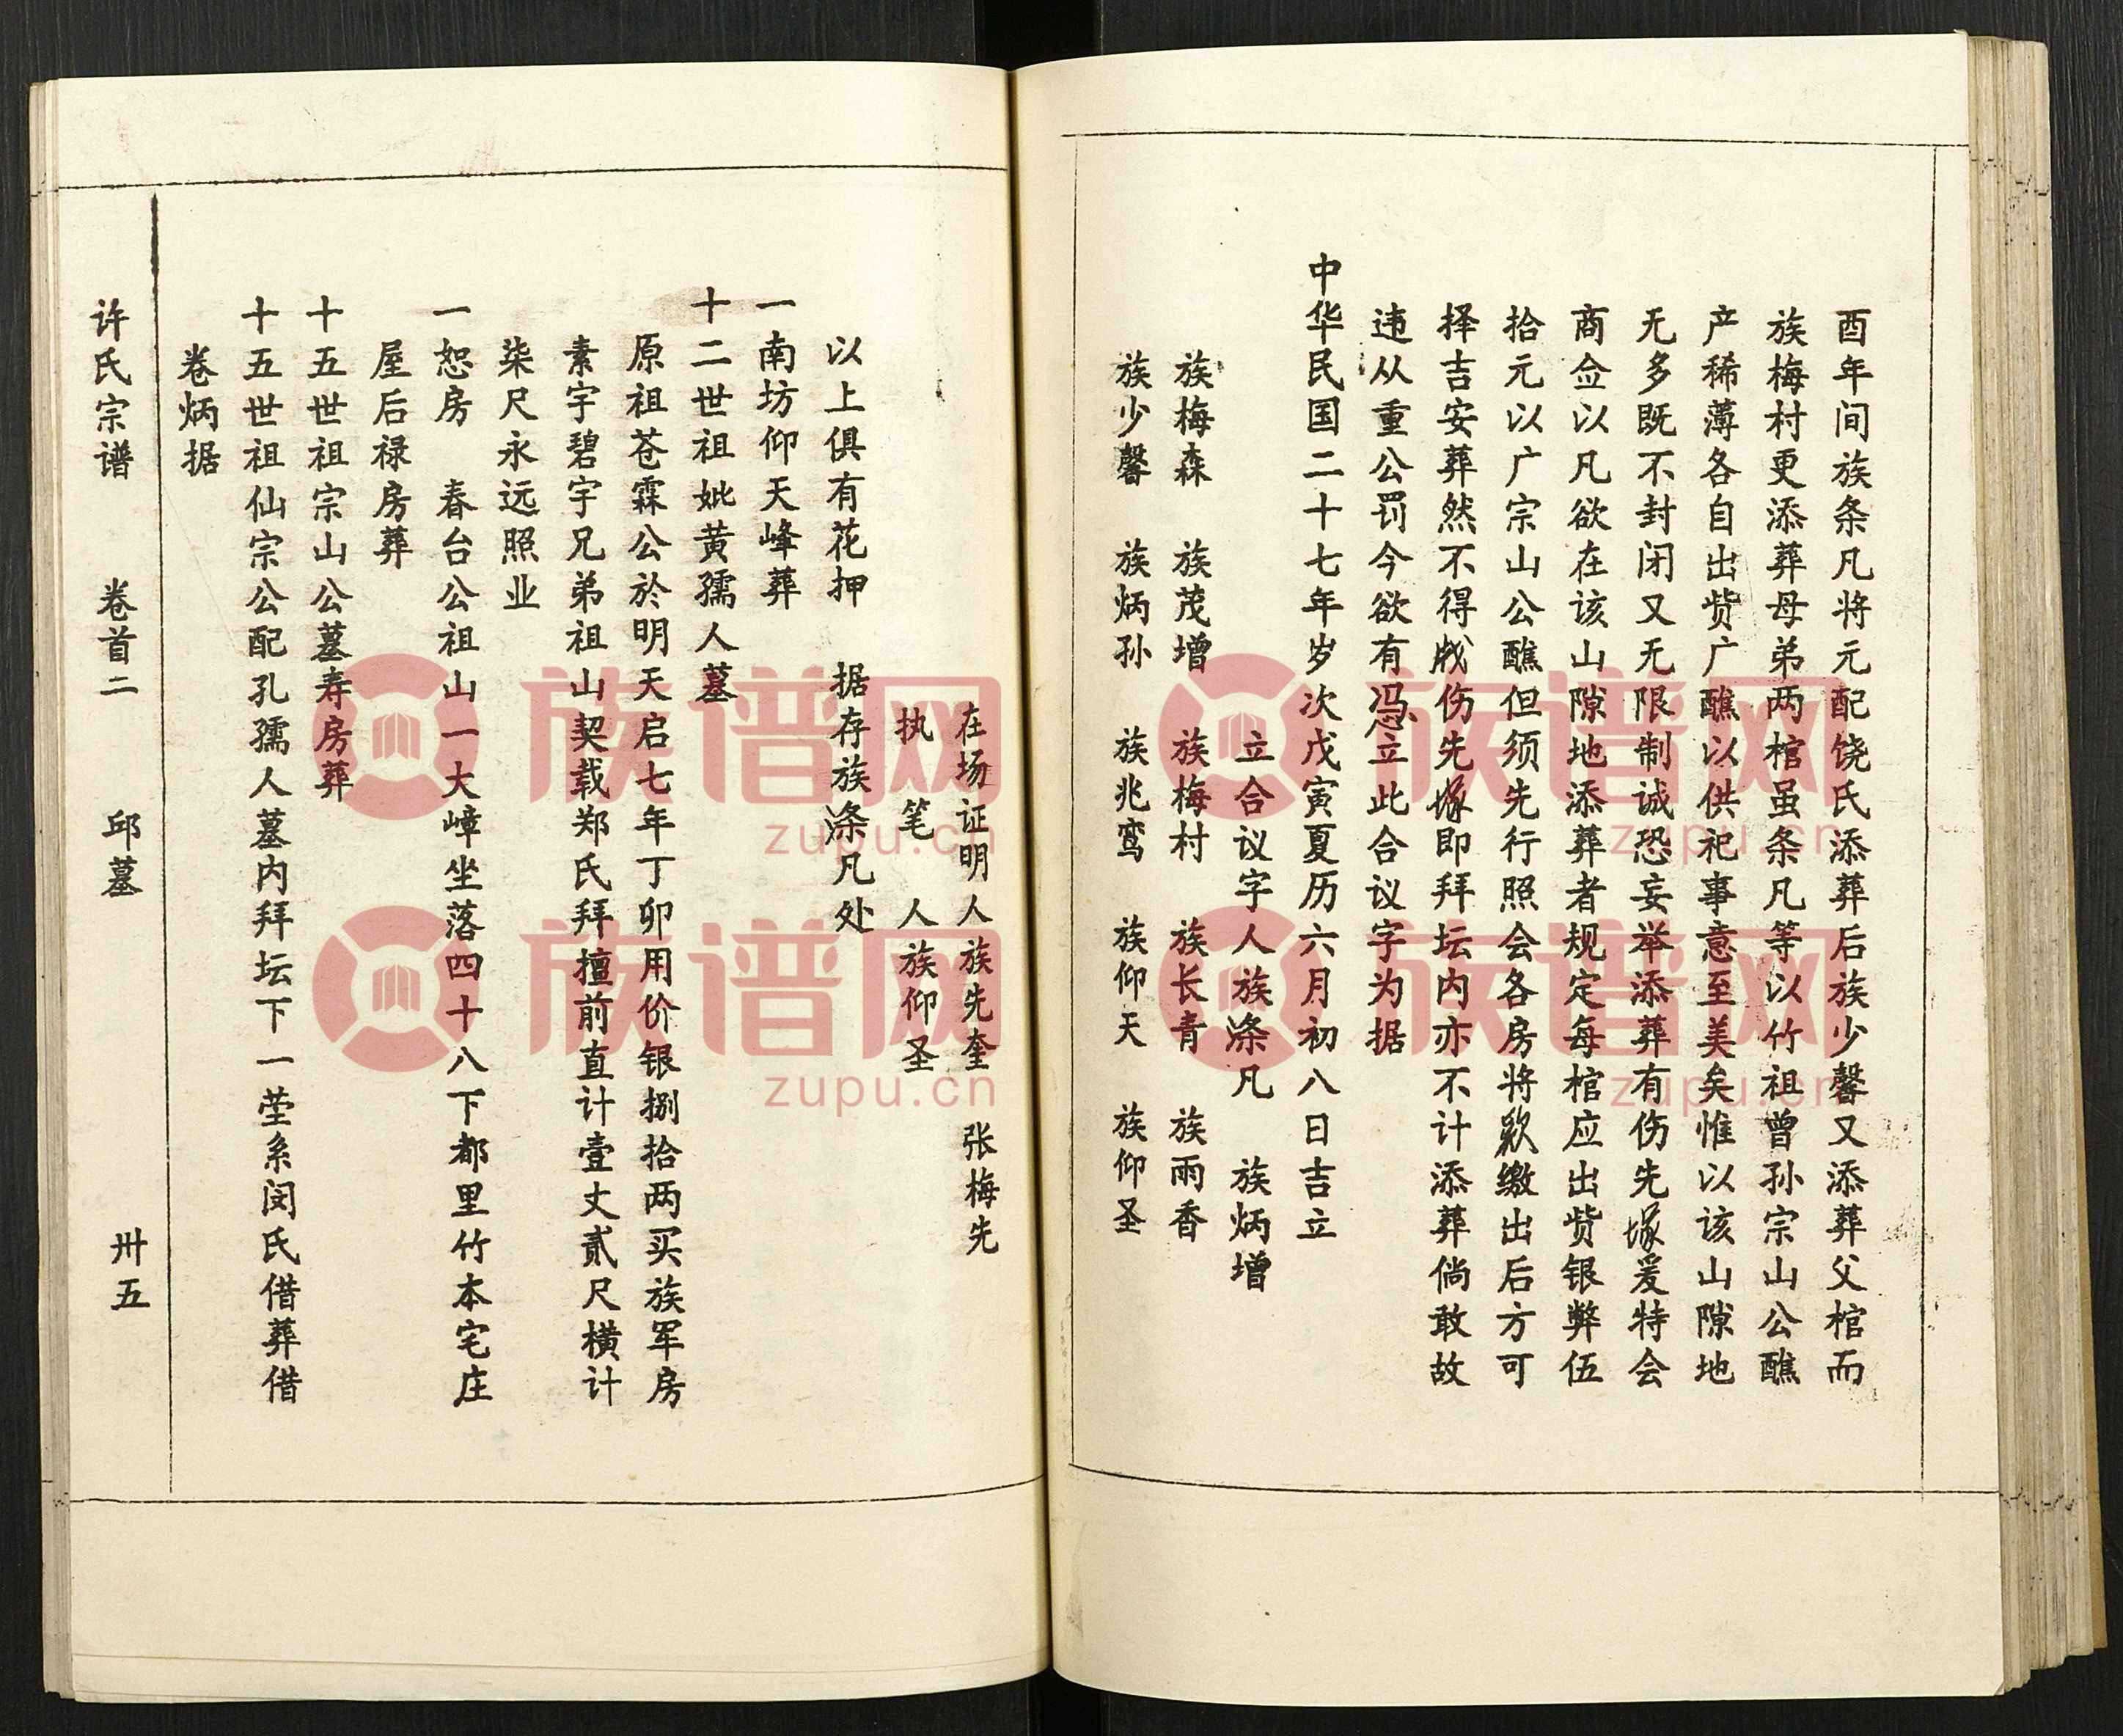 酉年间族条凡将元配饶氏添葬后族少馨又添葬父棺而
族梅村更添葬母弟两棺虽条凡等以竹祖曾孙宗山公醮
产稀薄各自出赀广醮以供祀事意至美矣惟以该山隙地
无多既不封闭又无限制诚恐妄举添葬有伤先塚爰特会
商佥以凡欲在该山隙地添葬者规定每棺应出赀银弊伍
拾元以广宗山公醮但须先行照会各房将欵缴出后方可
择吉安葬然不得戕伤先塚即拜坛内亦不计添葬倘敢故
违从重公罚今欲有凴立此合议字为据
中华民国二十七年岁次戊寅夏历六月初八日吉立
立合议字人族涤凡 族炳增
族梅森 族茂增 族梅村 族长青 族雨香
族少馨 族炳孙 族兆鸾 族仰天 族仰圣
在场证明人族先奎 张梅先
执笔人族仰圣
以上俱有花押 据存族涤凡处
一南坊仰天峰葬
十二世祖妣黄孺人墓
原祖苍霖公於明天启七年丁卯用价银捌拾两买族军房
素宇碧宇兄弟祖山契载郑氏拜擅前直计壹丈贰尺横计
柒尺永远照业
一恕房 春台公祖山一大嶂坐落四十八下都里竹本宅庄
屋后禄房葬
十五世祖宗山公墓寿房葬
十五世祖仙宗公配孔孺人墓内拜坛下一茔系闵氏借葬借
卷炳据
许氏宗谱 卷首二 邱墓 卅五
族谱网
zupu.cn
族谱网
zupu.cn
族谱网
zupu.cn
族谱网
zupu.cn